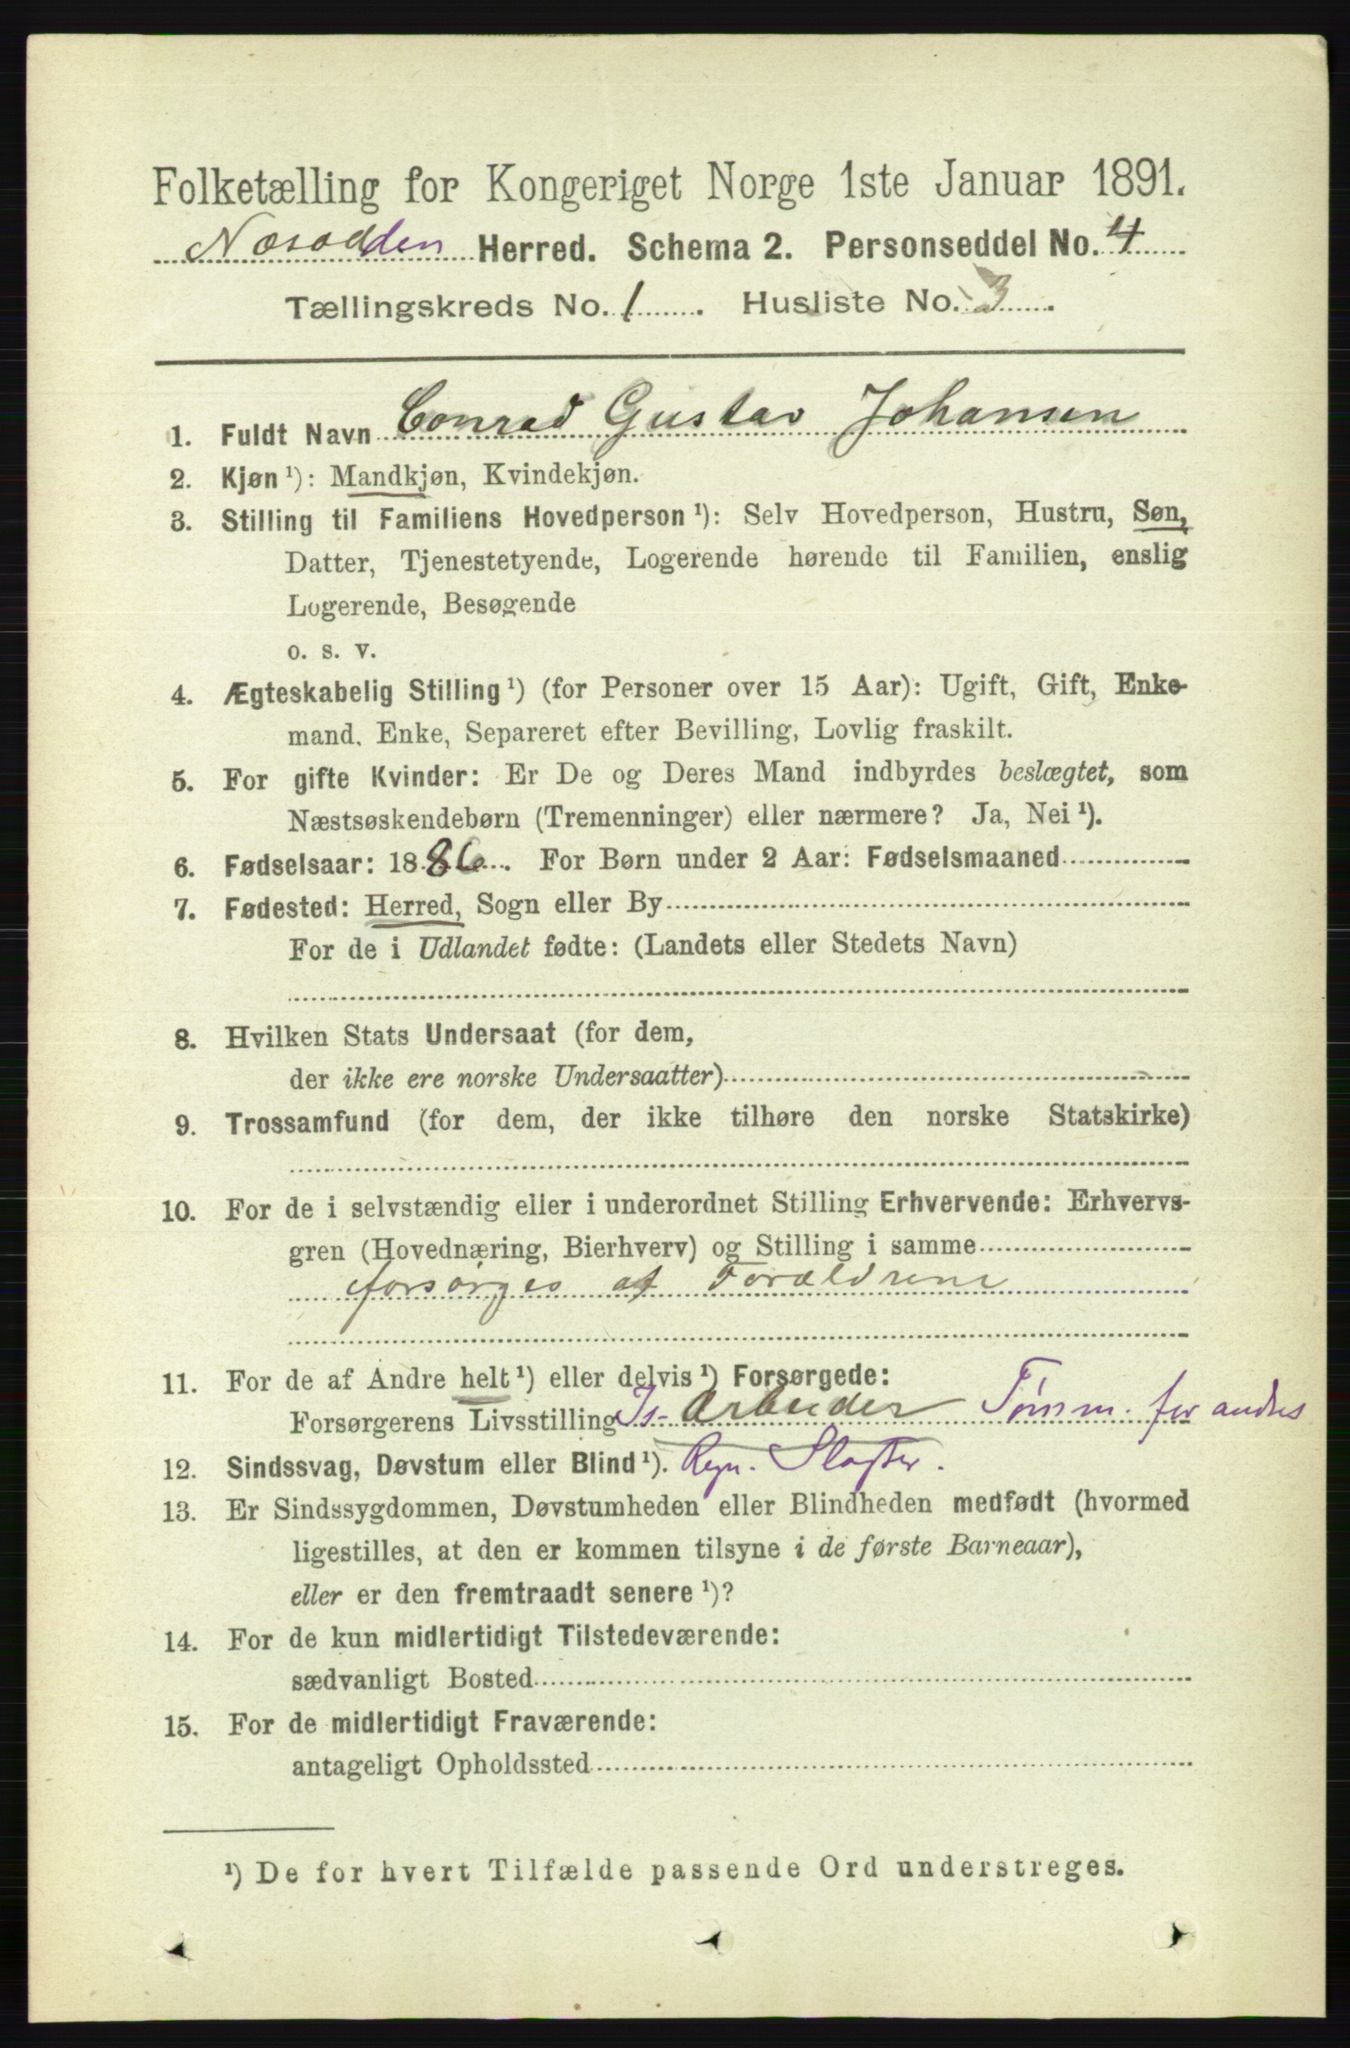 Folketælling for Kongeriget Norge 1ste Januar 1891.
Næsodden Herred. Schema 2. Personseddel No. 4
Tællingskreds No. 1. Husliste No. 3.
1. Fuldt Navn Conrad Gustav Johansen
2. Kjøn ¹): Mandkjøn, Kvindekjøn.
3. Stilling til Familiens Hovedperson ¹): Selv Hovedperson, Hustru, Søn,
Datter, Tjenestetyende, Logerende hørende til Familien, enslig
Logerende, Besøgende
o. s. v.
4. Ægteskabelig Stilling ¹) (for Personer over 15 Aar): Ugift, Gift, Enke-
mand, Enke, Separeret efter Bevilling, Lovlig fraskilt.
5. For gifte Kvinder: Er De og Deres Mand indbyrdes beslægtet, som
Næstsøskendebørn (Tremenninger) eller nærmere? Ja, Nei ¹).
6. Fødselsaar: 1886. For Børn under 2 Aar: Fødselsmaaned
7. Fødested: Herred, Sogn eller By
For de i Udlandet fødte: (Landets eller Stedets Navn)
8. Hvilken Stats Undersaat (for dem,
der ikke ere norske Undersaatter)
9. Trossamfund (for dem, der ikke tilhøre den norske Statskirke)
10. For de i selvstændig eller i underordnet Stilling Erhvervende: Erhvervs-
gren (Hovednæring, Bierhverv) og Stilling i samme
forsørges af Forældrene
11. For de af Andre helt ¹) eller delvis ¹) Forsørgede:
Forsørgerens Livsstilling Is-Arbeider Tømm. for andres
12. Sindssvag, Døvstum eller Blind ¹). Regn. Slagter.
13. Er Sindssygdommen, Døvstumheden eller Blindheden medfødt (hvormed
ligestilles, at den er kommen tilsyne i de første Barneaar),
eller er den fremtraadt senere ¹)?
14. For de kun midlertidigt Tilstedeværende:
sædvanligt Bosted
15. For de midlertidigt Fraværende:
antageligt Opholdssted
¹) De for hvert Tilfælde passende Ord understreges.